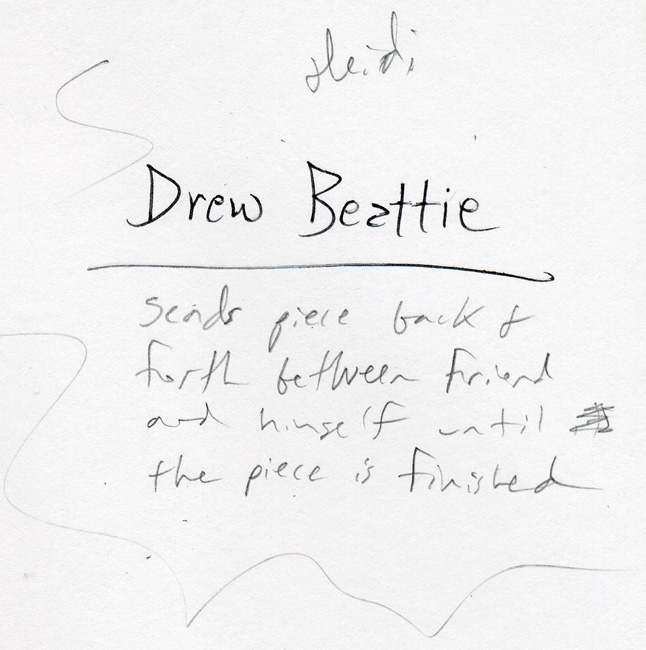 Heidi
Drew Beattie
sends piece back &
forth between friend
and himself until
the piece is finished